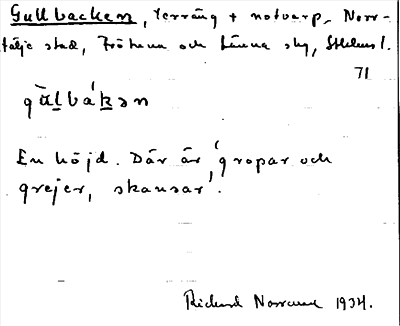 Gullbacken, terräng + notvarp, Norr-
tälje stad, Frötuna och Länna skg, Sthlms l.
71
gùlbák̲ən
En höjd. Där är 'gropar och
grejer, skansar'.
Richard 1934.